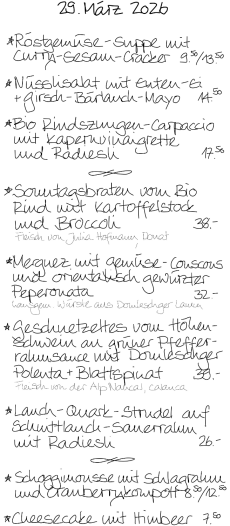 29. März 2026
* Röstgemüse-Suppe mit
Curry-Sesam-Cracker 9.50/13.50
* Nüsslisalat mit Enten-Ei
+ Girsch-Bärlauch-Mayo 14.50
* Bio Rindszungen-Carpaccio
mit Kapernvinaigrette
und Radiesli 17.50
* Sonntagsbraten vom Bio
Rind mit Kartoffelstock
und Broccoli 38.-
Fleisch von Julia Hofmann, Donat
* Merguez mit Gemüse-Couscous
und orientalisch gewürzter
Peperonata 32.-
Würste aus Domleschger Lamm
* Geschnetzeltes vom Höhen-
schwein an grüner Pfeffer-
rahmsauce mit Domleschger
Polenta + Blattspinat 38.-
Fleisch von der Alp Nancal, Calanca
* Lauch-Quark-Strudel auf
Schnittlauch-Sauerrahm
mit Radiesli 26.-
* Schoggimousse mit Schlagrahm
und Cranberrykompott 8.50/12.50
* Cheesecake mit Himbeer 7.50